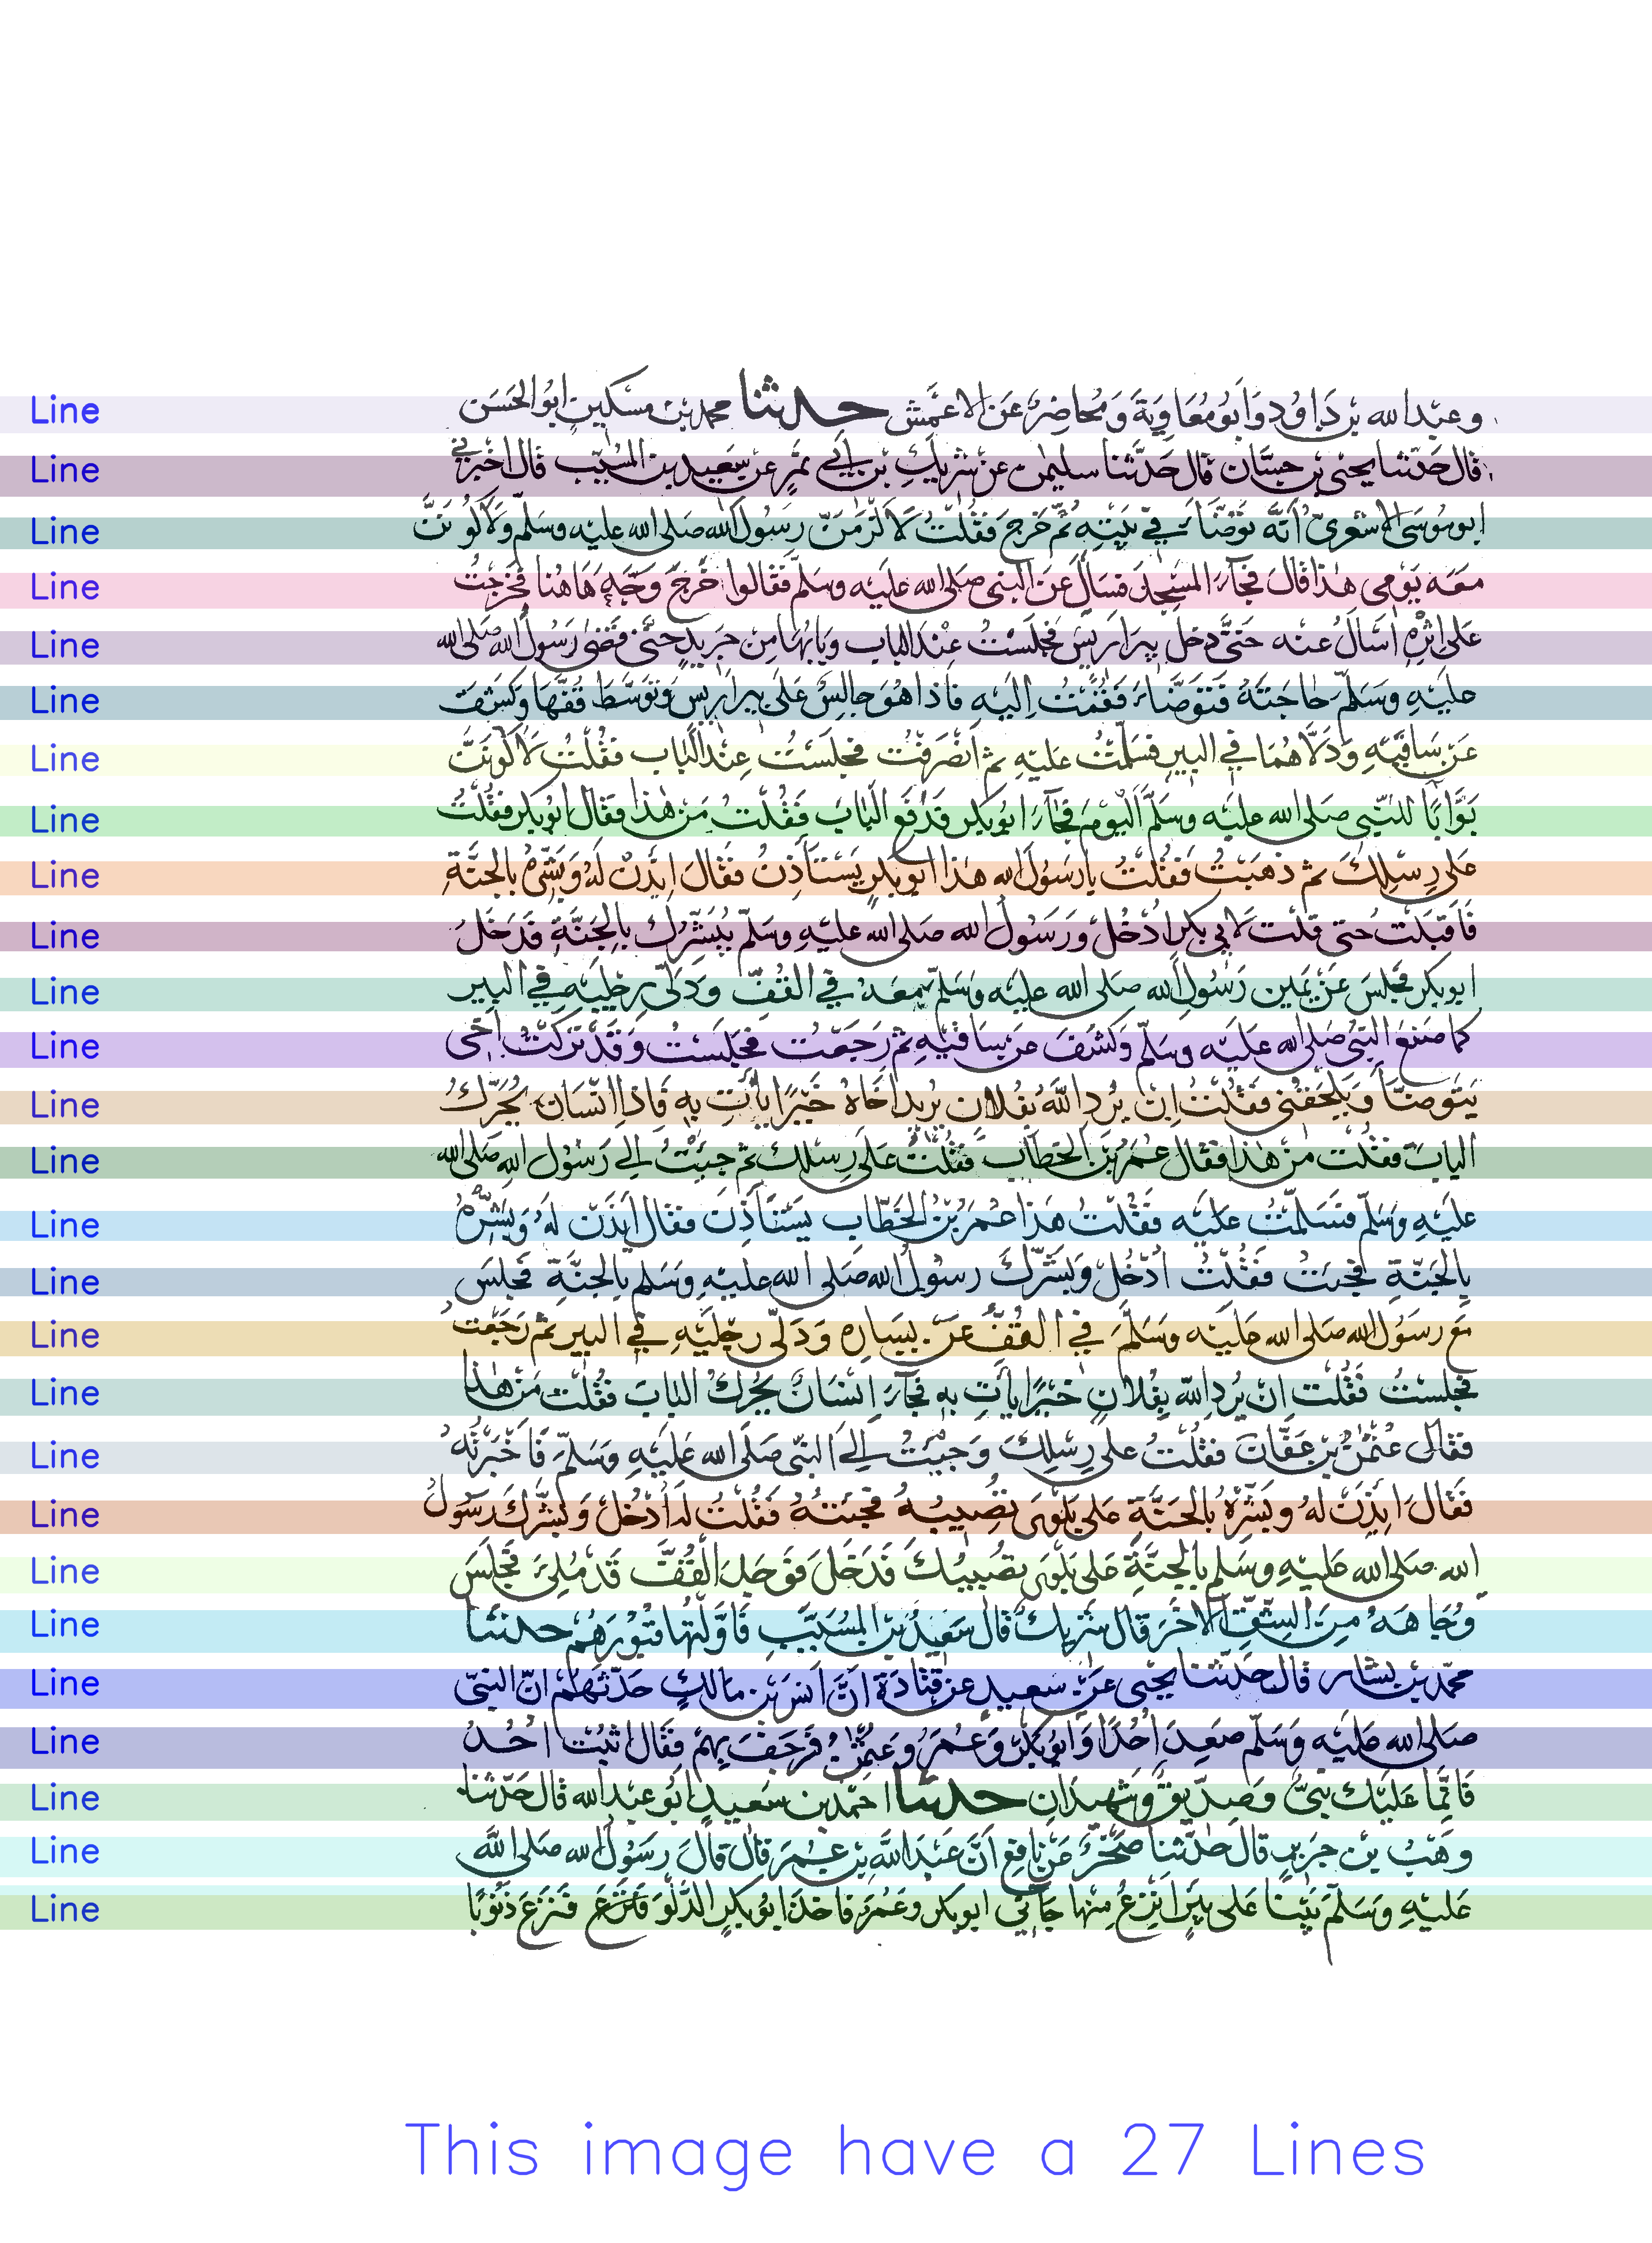 Line وعبد الله بن داود وابو معاوية ومحاضر عن الاعمش حدثنا محمد بن مسكين ابو الحسن
Line قال حدثنا يحيى بن حسان قال حدثنا سليمن عن شريك بن ابي نمر عن سعيد بن المسيب قال اخبرني
Line ابو موسى الاشعري انه توضأ في بيته ثم خرج فقلت لالزمن رسول الله صلى الله عليه وسلم ولاكونن
Line معه يومي هذا قال فجاء المسجد فسأل عن النبي صلى الله عليه وسلم فقالوا خرج وجه هاهنا فخرجت
Line على اثره اسأل عنه حتى دخل بير اريس فجلست عند الباب وبابها من جريد حتى قضى رسول الله صلى الله
Line عليه وسلم حاجته فتوضأ فقمت اليه فاذا هو جالس على بير اريس وتوسط قفها وكشف
Line عن ساقيه ودلاهما في البير فسلمت عليه ثم انصرفت فجلست عند الباب فقلت لاكونن
Line بوابا للنبي صلى الله عليه وسلم اليوم فجاء ابو بكر فدفع الباب فقلت من هذا فقال ابو بكر فقلت
Line على رسلك ثم ذهبت فقلت يا رسول الله هذا ابو بكر يستأذن فقال ايذن له وبشره بالجنة
Line فاقبلت حتى قلت لابي بكر ادخل ورسول الله صلى الله عليه وسلم يبشرك بالجنة فدخل
Line ابو بكر فجلس عن يمين رسول الله صلى الله عليه وسلم معه في القف ودلى رجليه في البير
Line كما صنع النبي صلى الله عليه وسلم وكشف عن ساقيه ثم رجعت فجلست وقد تركت اخي
Line يتوضأ ويلحقني فقلت ان يرد الله بفلان يريد اخاه خيرا يأت به فاذا انسان يحرك
Line الباب فقلت من هذا فقال عمر بن الخطاب فقلت على رسلك ثم جيت الى رسول الله صلى الله
Line عليه وسلم فسلمت عليه فقلت هذا عمر بن الخطاب يستأذن فقال ايذن له وبشره
Line بالجنة فجيت فقلت ادخل وبشرك رسول الله صلى الله عليه وسلم بالجنة فجلس
Line مع رسول الله صلى الله عليه وسلم في القف عن يساره ودلى رجليه في البير ثم رجعت
Line فجلست فقلت ان يرد الله بفلان خيرا يأت به فجاء انسان يحرك الباب فقلت من هذا
Line فقال عثمن بن عفان فقلت على رسلك وجيت الى النبي صلى الله عليه وسلم فاخبرته
Line فقال ايذن له وبشره بالجنة على بلوى تصيبه فجئته فقلت له ادخل وبشرك رسول
Line الله صلى الله عليه وسلم بالجنة على بلوى تصيبك فدخل فوجد القف قد ملئ فجلس
Line وجاهه من الشق الاخر قال شريك قال سعيد بن المسيب فاولتها قبورهم حدثنا
Line محمد بن بشار قال حدثنا يحيى عن سعيد عن قتادة ان انس بن مالك حدثهم ان النبي
Line صلى الله عليه وسلم صعد احدا وابو بكر وعمر وعثمن فرجف بهم فقال اثبت احد
Line فانما عليك نبي وصديق وشهيدان حدثنا احمد بن سعيد ابو عبد الله قال حدثنا
Line وهب بن جرير قال حدثنا صخر عن نافع ان عبد الله بن عمر قال قال رسول الله صلى الله
Line عليه وسلم بينا على بير انزع منها جاءني ابو بكر وعمر فاخذ ابو بكر الدلو فنزع ذنوبا
This image have a 27 Lines